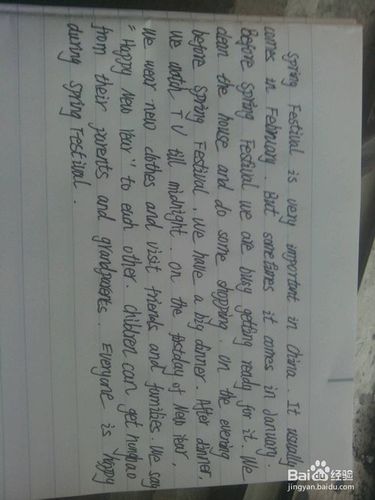 Spring Festival is very important in China. It usually
comes in February. But sometimes it comes in January.
Before Spring Festival we are busy getting ready for it. We
clean the house and do some shopping. On the evening
before Spring Festival, we have a big dinner. After dinner,
we watch TV till midnight. on the firstday of New Year,
we wear new clothes and visit friends and families. We say
"Happy New Year" to each other. Children can get hongbao
from their parents and grandparents. Everyone is happy
during Spring Festival.
Baidu 经验
jingyan.baidu.com